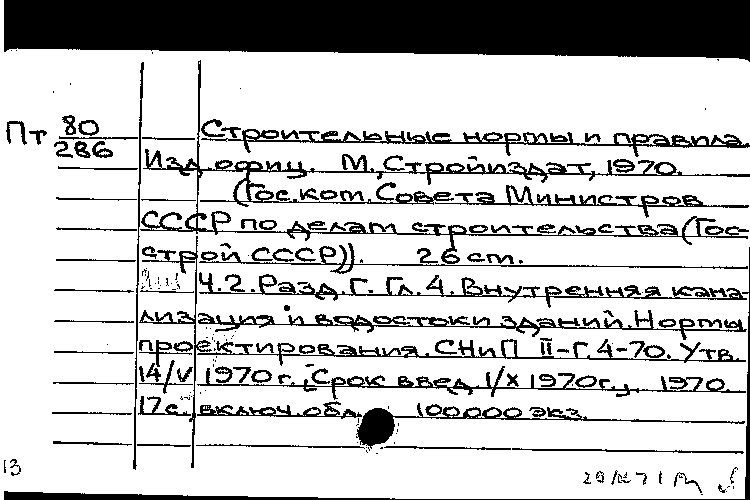 Пт 80
286
Строительные нормы и правила.
Изд. офиц. М., Стройиздат, 1970.
(Гос. ком. Совета Министров
СССР по делам строительства (Гос-
строй СССР)). 26 см.
Ч.2. Разд. Г. Гл. 4. Внутренняя кана-
лизация и водостоки зданий. Нормы
проектирования. СНиП II-Г. 4-70. Утв.
14/V 1970 г. [Срок введ. 1/X 1970г.]. 1970.
17 с., включ. обл. 100.000 экз.
13